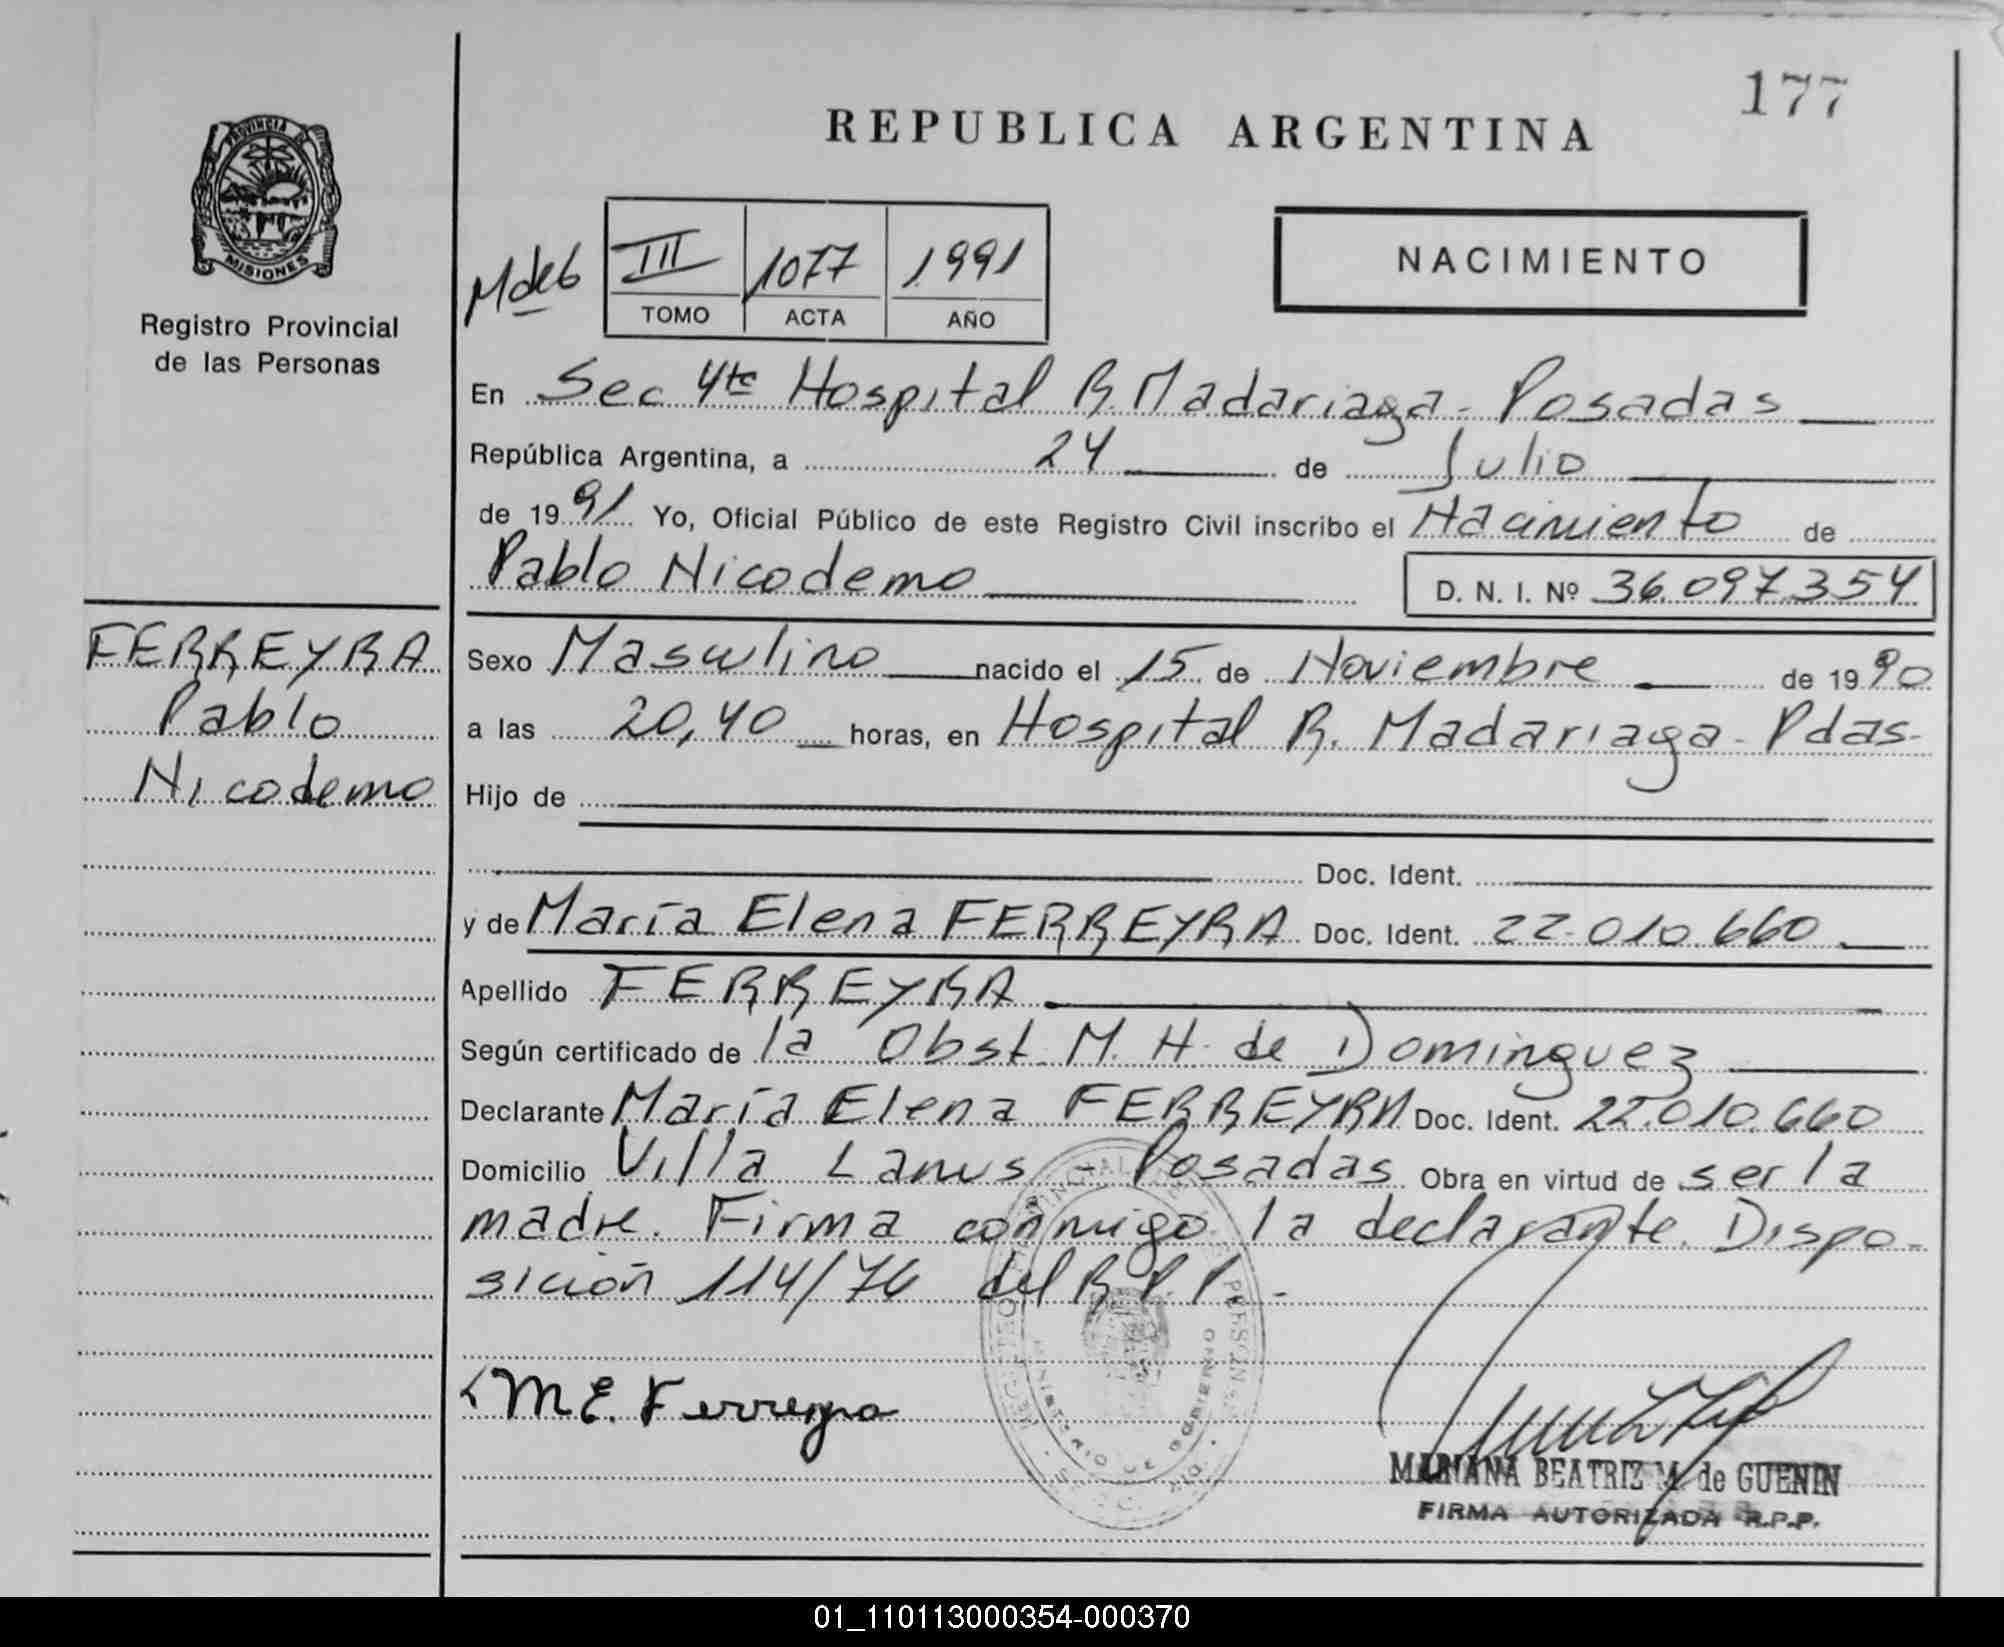 177
REPUBLICA ARGENTINA
PROVINCIA DE
MISIONES
Registro Provincial
de las Personas
III 1077 1991
TOMO ACTA AÑO
NACIMIENTO
En Sec 4ta Hospital R. Madariaga - Posadas
República Argentina, a 24 de Julio
de 1991 Yo, Oficial Público de este Registro Civil inscribo el Nacimiento de
Pablo Nicodemo D. N. I. Nº 36.097.354
FERREYRA
Pablo
Nicodemo
Sexo Masculino nacido el 15 de Noviembre de 1990
a las 20,40 horas, en Hospital R. Madariaga - Pdas-
Hijo de
Doc. Ident.
y de María Elena FERREYRA Doc. Ident. 22.010.660
Apellido FERREYRA
Según certificado de la Obst. M. H. de Dominguez
Declarante María Elena FERREYRA Doc. Ident. 22.010.660
Domicilio Villa Lanus - Posadas Obra en virtud de ser la
madre. Firma conmigo la declarante. Dispo-
sición 114/76 del R P P. -
M E. Ferreyra
MARIANA BEATRIZ M. de GUENIN
FIRMA AUTORIZADA R.P.P.
01_110113000354-000370